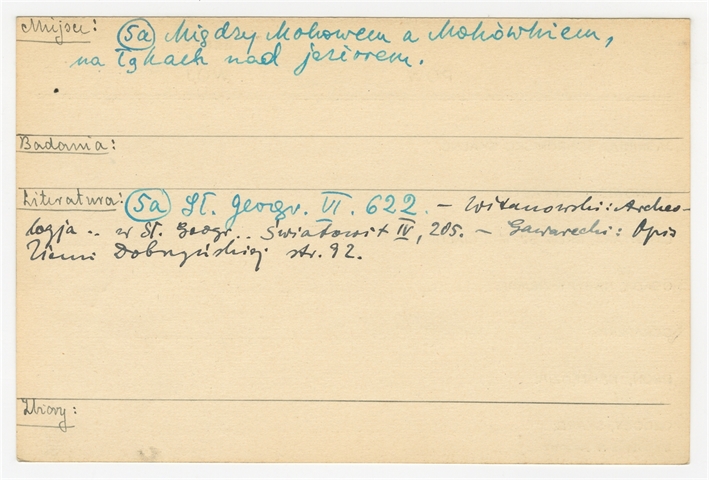 Miejsce: (5a) Między Mokowem a Mokówkiem,
na łąkach nad jeziorem.
Badania:
Literatura: (5a) Sł. Geogr. VI. 622. – Witanowski: Archeo-
logja .. w Sł. Geogr.. Światowit IV, 205. – Gawarecki: Opis
Ziemi Dobrzyńskiej str. 92.
Zbiory: